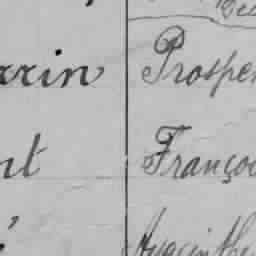 rrin Prosper
nt Françoi
é Hyacinthe